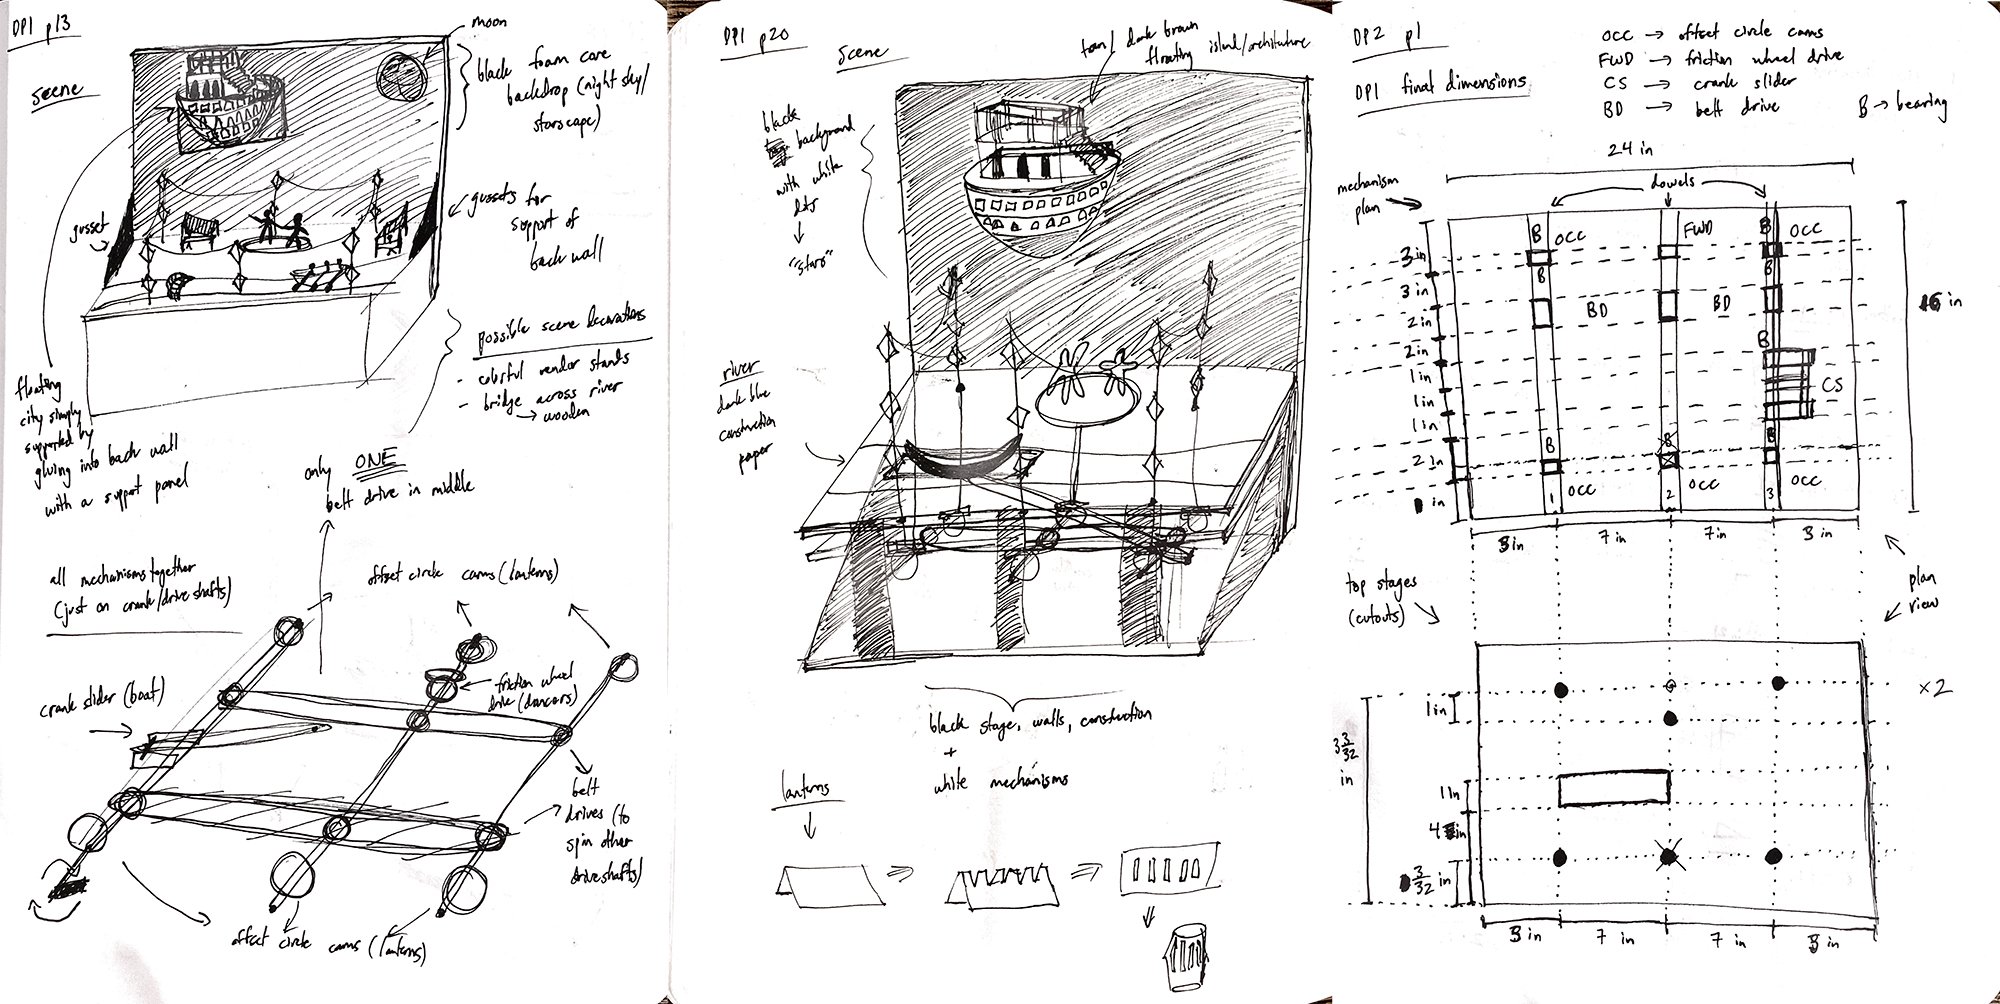 DP1 p13
scene
moon
black foam core
backdrop (night sky/
starscape)
gusset
gussets for
support of
back wall
possible scene decorations
- colorful vendor stands
- bridge across river
→ wooden
floating
city simply
supported by
gluing into back wall
with a support panel
only ONE
belt drive in middle
all mechanisms together
(just on crank/drive shafts)
offset circle cams (lanterns)
crank slider (boat)
friction wheel
drive (dancers)
belt
drives (to
spin other
driveshafts)
offset circle cams (lanterns)
DP1 p20
scene
tan/dark brown
floating island/architecture
black
background
with white
dots
"stars"
river
dark blue
construction
paper
black stage, walls, construction
+
white mechanisms
lanterns
DP2 p1
DP1 final dimensions
OCC → offset circle cams
FWD → friction wheel drive
CS → crank slider
BD → belt drive
B → bearing
24 in
mechanism
plan
dowels
B OCC
FWD
B OCC
3 in
B
B
3 in
BD
BD
2 in
B
2 in
1 in
CS
1 in
1 in
B
B
B
2 in
in
1 OCC
2 OCC
3 OCC
16 in
3 in
7 in
7 in
3 in
top stages
(cutouts)
plan
view
x2
1 in
3 3/32
in
1 in
4 in
3/32 in
3 in
7 in
7 in
3 in